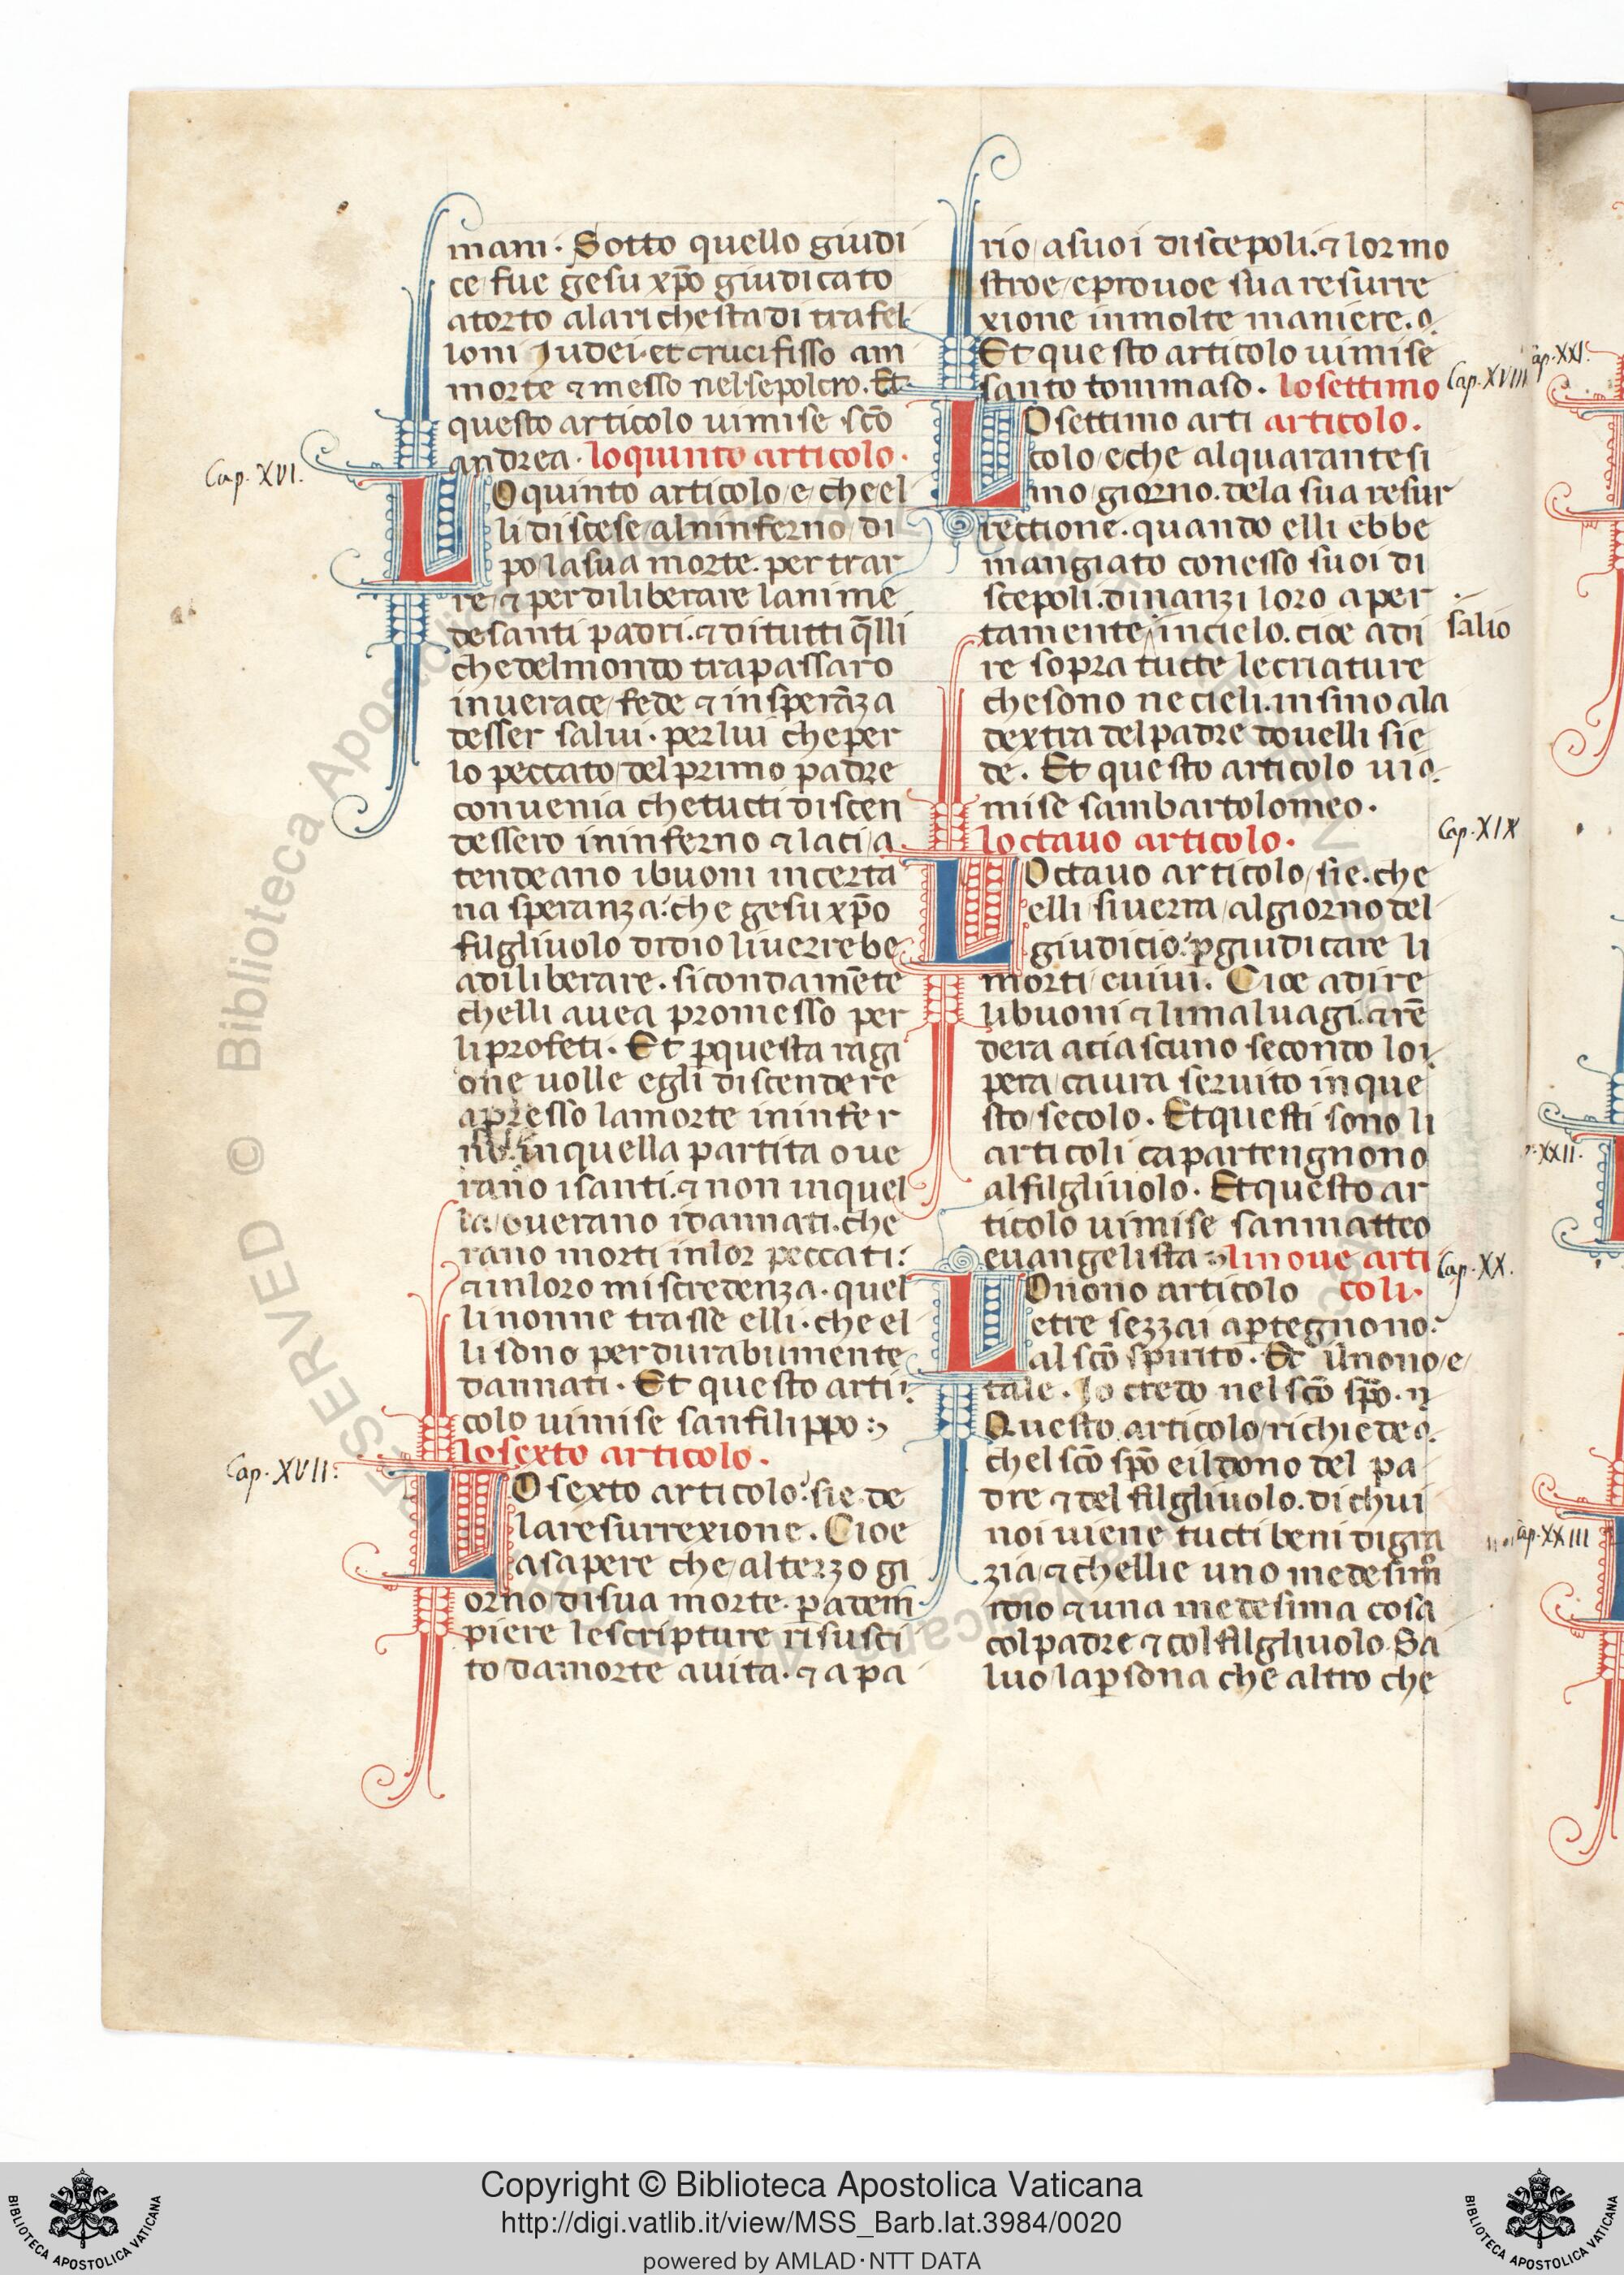 mani. Sotto quello giudi
ce fue gesu xp̄o giudicato
atorto alarichesta di trafel
loni Judei. et crucifisso am
morte ⁊ messo nel sepolcro. Et
questo articolo uimise sc̄o
andrea. lo quinto articolo.
Cap. XVI.
LO quinto articolo e che el
li discese alninferno di
po la sua morte. per trar
re ⁊ per diliberare lanime
de santi padri. ⁊ di tutti q̄lli
che del mondo trapassaro
in uerace fede ⁊ in sperāza
desser salui. per lui che per
lo peccato del primo padre
conuenia che tucti discen
dessero in inferno ⁊ laci a
tendeano ibuoni in certa
na speranza. che gesu xp̄o
filgliuolo didio liuerrebe
adiliberare. sicondamēte
chelli auea promesso per
li profeti. Et p̄questa ragi
one uolle egli discendere
apresso lamorte in infer
no. in quella partita oue
rano isanti. ⁊ non in quel
la ouerano idannati. che
rano morti in lor peccati.
⁊ in loro miscredenza. quel
li nonne trasse elli. che el
li sono perdurabilmente
dannati. Et questo arti
colo uimise san filippo.
lo sexto articolo.
Cap. XVII.
LO sexto articolo. sie de
la resurrexione. Cioe
asapere che al terzo gi
orno di sua morte. p̄ adem
piere le scripture risusci
to da morte a uita. ⁊ apa
rio a suoi discepoli. ⁊ lor mo
stroe e prouoe sua resurre
xione in molte maniere.
Et questo articolo uimise
santo tommaso. lo settimo
Cap. XVIII
LO settimo arti articolo.
colo e che al quarantesi
mo giorno. dela sua resur
rectione. quando elli ebbe
mangiato con esso suoi di
scepoli. dinanzi loro aper
tamente in cielo. cioe adi
salio
re sopra tucte le criature
che sono ne cieli. in sino ala
dextra del padre douelli sie
de. Et questo articolo ui
mise sam bartolomeo.
loctauo articolo.
Cap. XIX
LOctauo articolo sie. che
elli si uerra al giorno del
giudicio. p̄ giudicare li
morti e uiui. Cioe adire
li buoni ⁊ li maluagi. ⁊ rē
dera a ciascuno secondo lo
pera caura seruito in que
sto secolo. Et questi sono li
articoli capartengnono
al filgliuolo. Et questo ar
ticolo uimise san matteo
euangelista. li noue arti
Cap. XX.
LO nono articolo coli.
etre sezzai ap̄tegnono.
al sc̄o spirito. Et il nono e
tale. Jo credo nel sc̄o sp̄o.
Questo articolo richiede
chel sc̄o sp̄o e il dono del pa
dre ⁊ del filgliuolo. di chui
noi uiene tucti beni di gra
zia ⁊ chellie uno medesimo
dio ⁊ una medesima cosa
col padre ⁊ col filgliuolo. Sa
luo la p̄sona che altro che
Cap. XXI.
XXII.
Cap. XXIII
Copyright © Biblioteca Apostolica Vaticana
http://digi.vatlib.it/view/MSS_Barb.lat.3984/0020
powered by AMLAD·NTT DATA
BIBLIOTECA APOSTOLICA VATICANA
BIBLIOTECA APOSTOLICA VATICANA